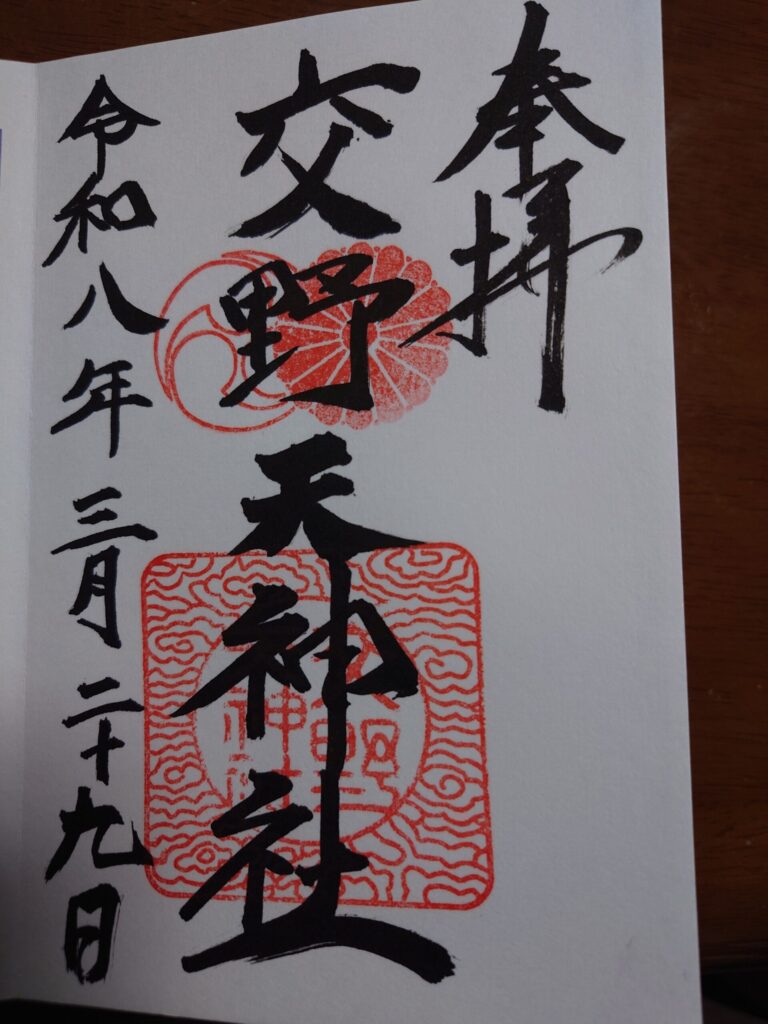 奉拝
交野天神社
令和八年三月二十九日